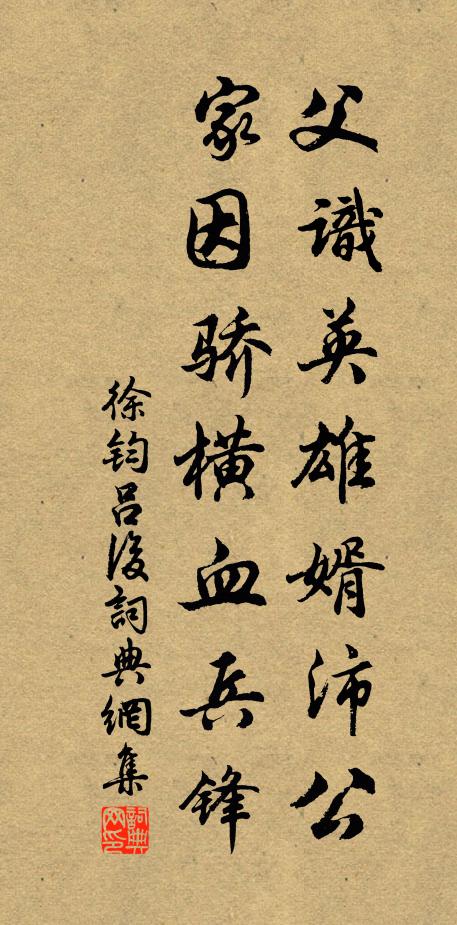 父識英雄婿沛公
家因骄橫血兵锋
徐钧吕後詞典網集
詞典網印